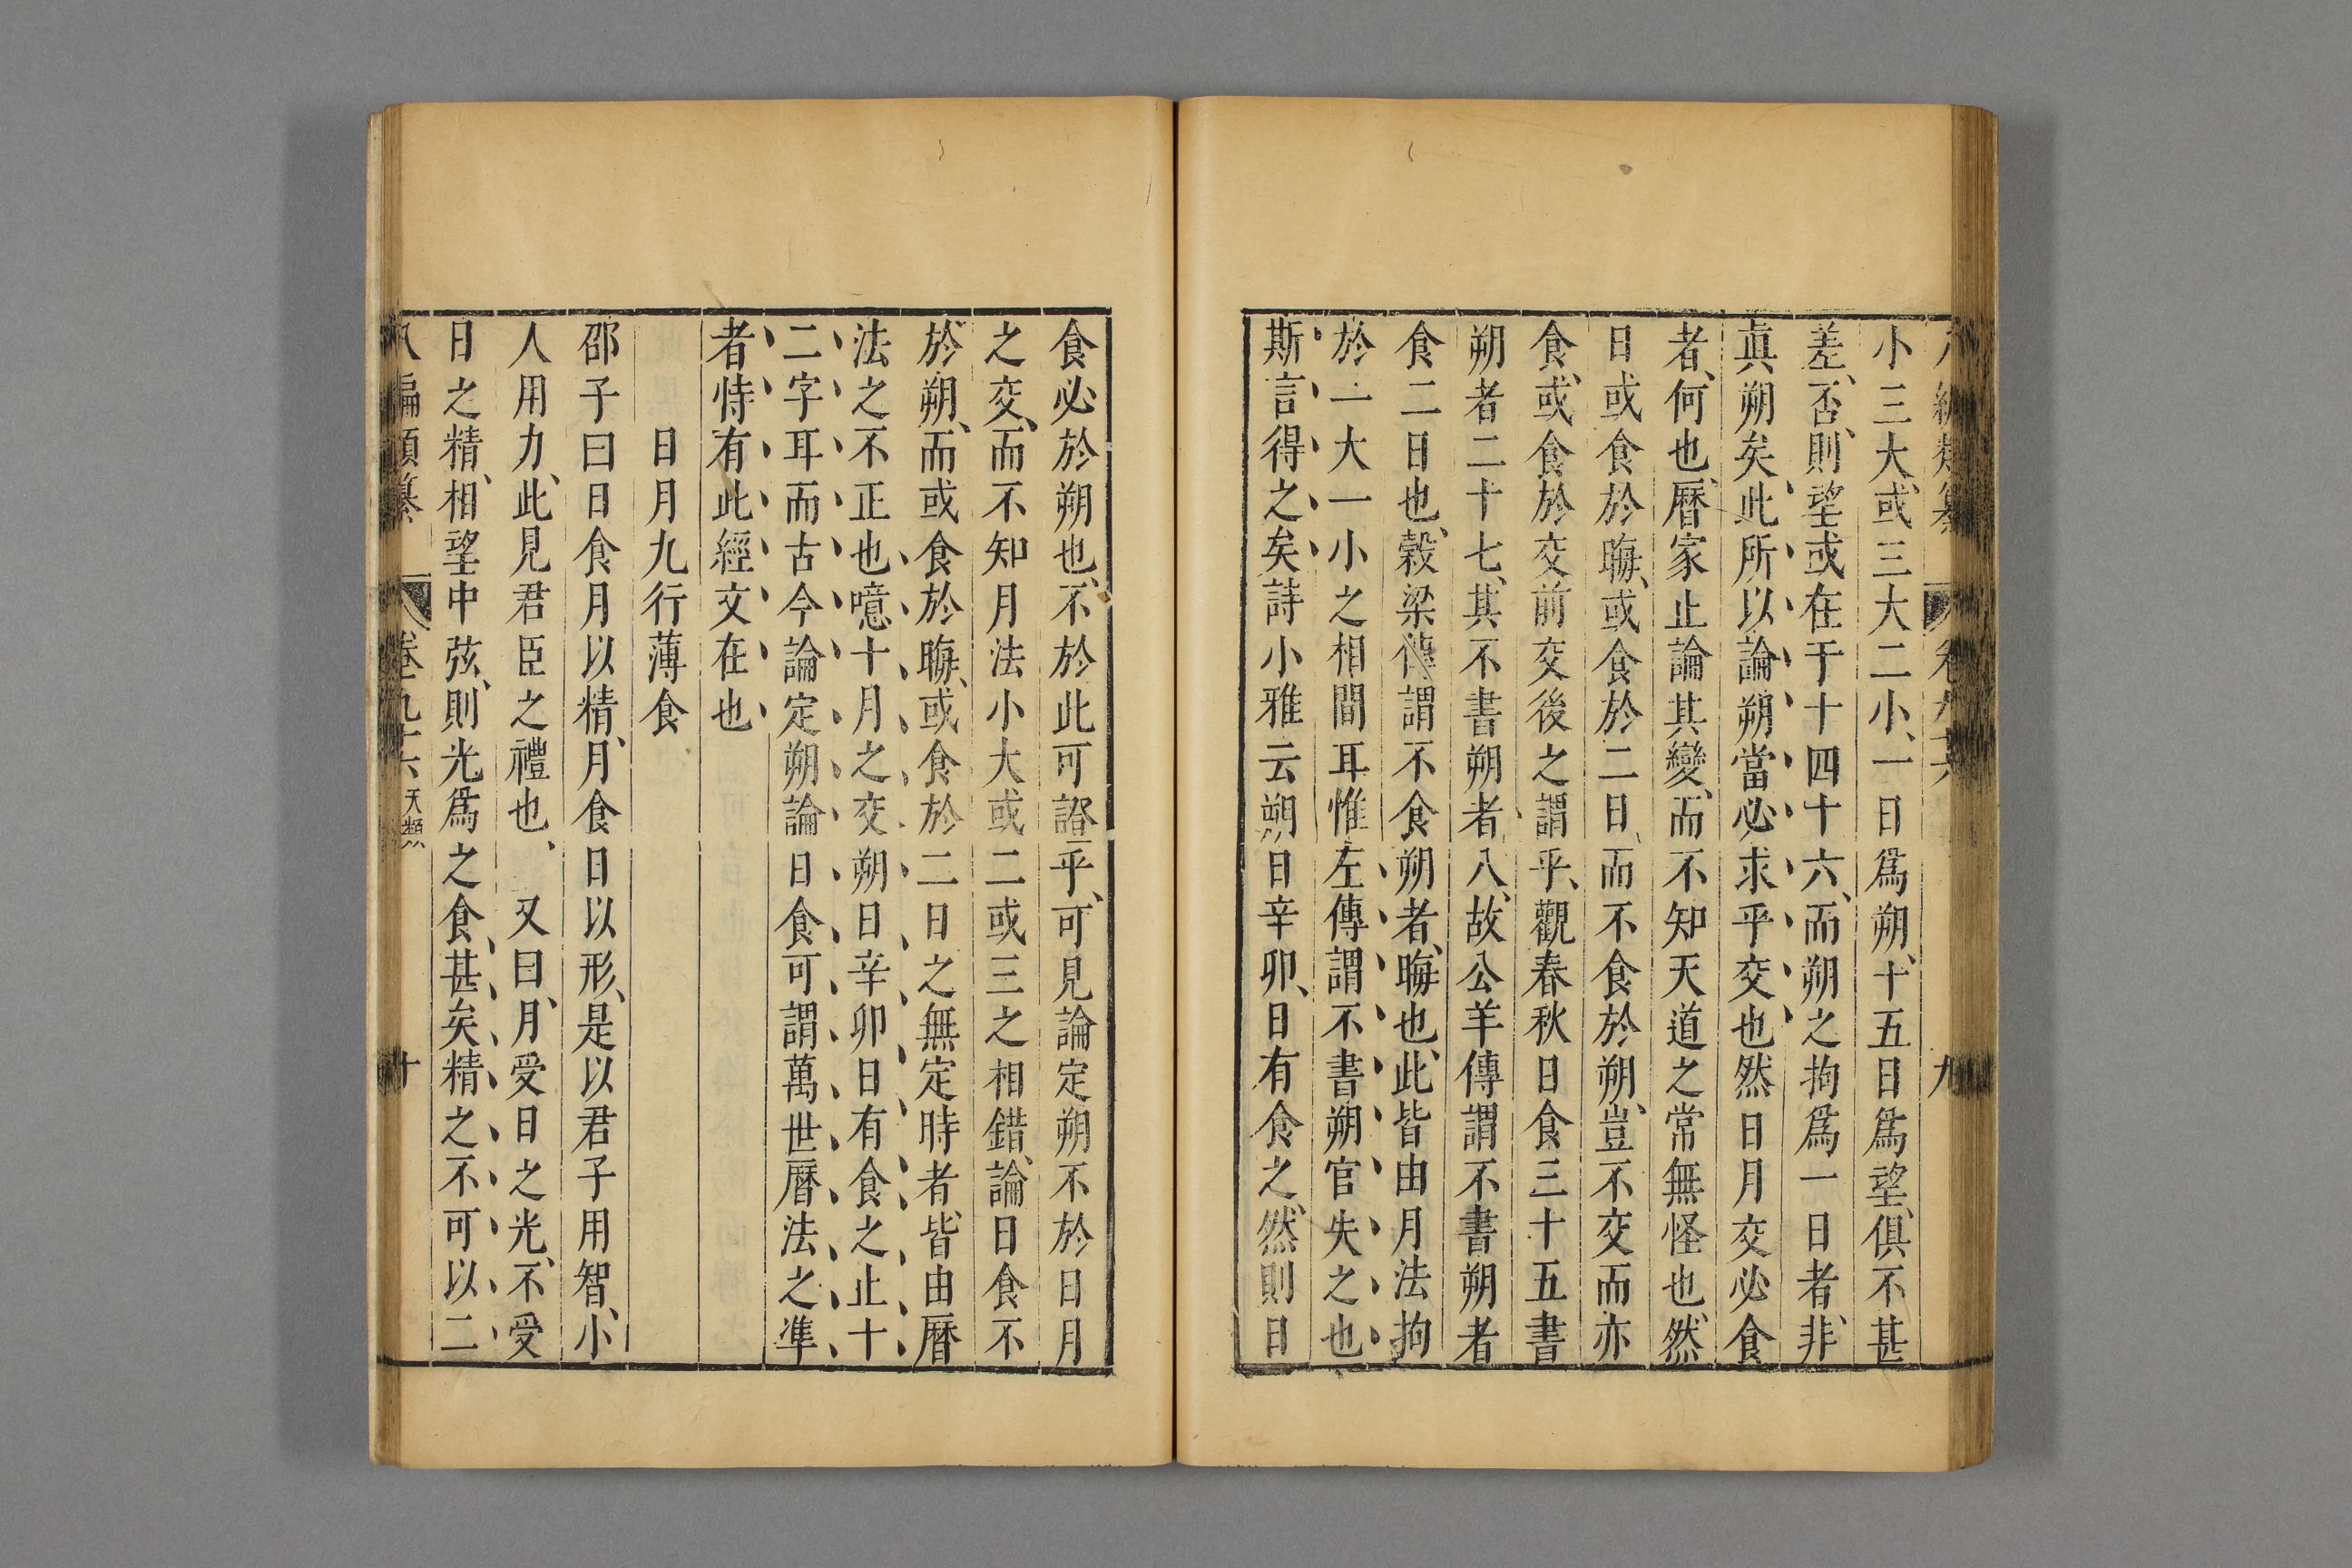 小三大或三大二小一日爲朔十五日爲望俱不甚
差否則望或在于十四十六而朔之拘爲一日者非
眞朔矣此所以論朔當必求乎交也然日月交必食
者何也曆家止論其變而不知天道之常無怪也然
日或食於晦或食於二日而不食於朔豈不交而亦
食或食於交前交後之謂乎觀春秋日食三十五書
朔者二十七其不書朔者八故公羊傳謂不書朔者
食二日也穀梁傳謂不食朔者晦也此皆由月法拘
於一大一小之相間耳惟左傳謂不書朔官失之也
斯言得之矣詩小雅云朔日辛卯日有食之然則日
食必於朔也不於此可證乎可見論定朔不於日月
之交而不知月法小大或二或三之相錯論日食不
於朔而或食於晦或食於二日之無定時者皆由曆
法之不正也噫十月之交朔日辛卯日有食之止十
二字耳而古今論定朔論日食可謂萬世曆法之準
者恃有此經文在也
日月九行薄食
邵子曰日食月以精月食日以形是以君子用智小
人用力此見君臣之禮也　又曰月受日之光不受
日之精相望中弦則光爲之食甚矣精之不可以二
八編類纂　卷九十六　天類　十